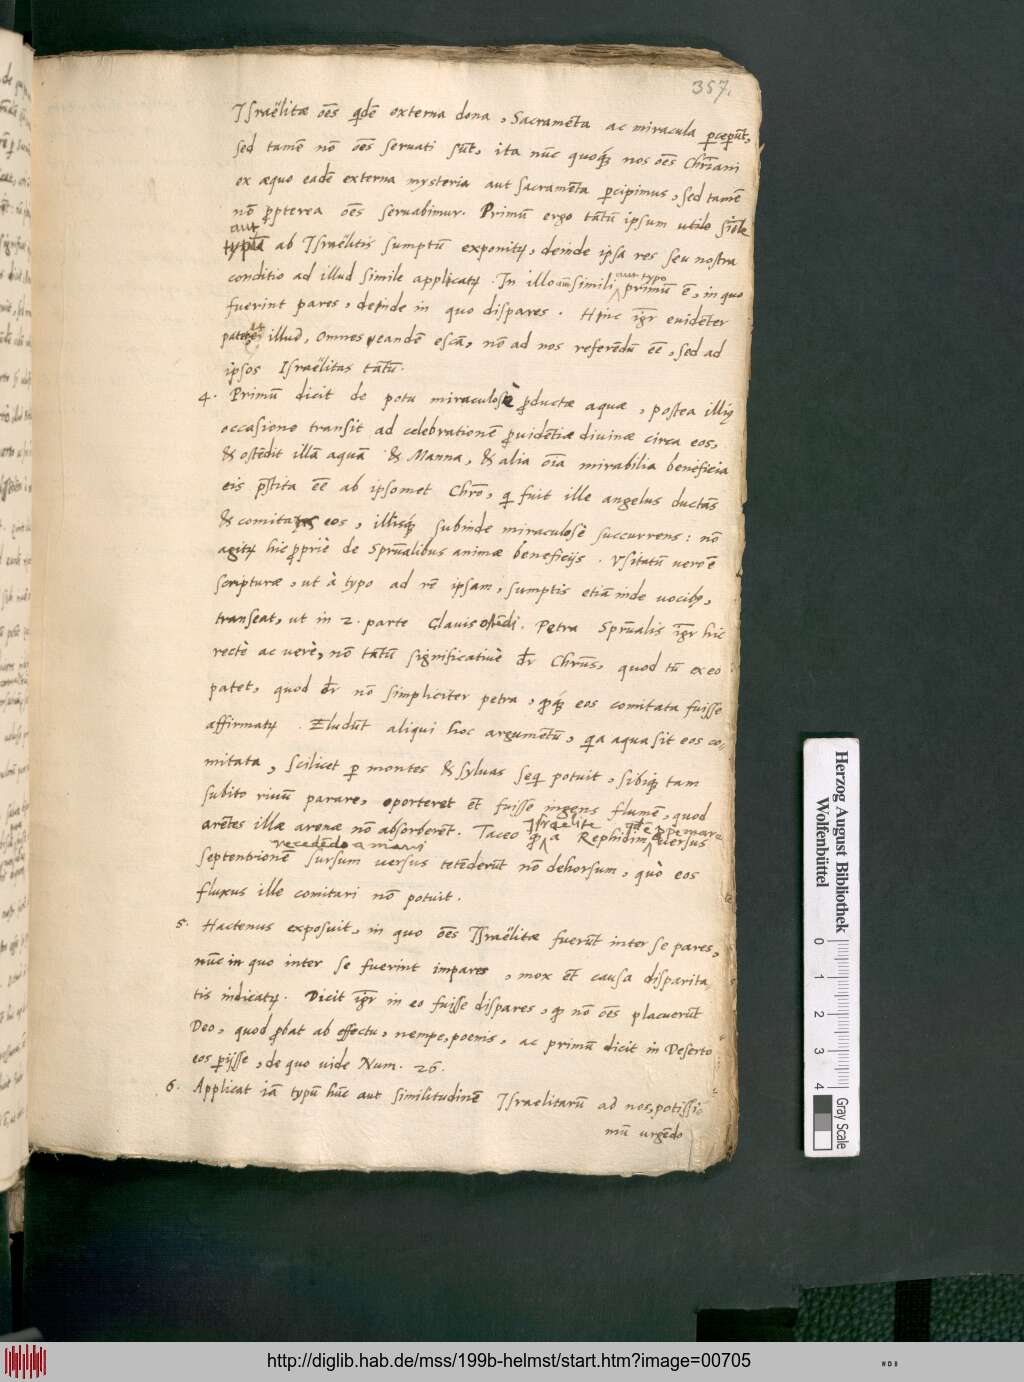 357.
Israëlitae oēs qdē externa dona, Sacramēta ac miracula pceperūt,
sed tamē nō oēs seruati sūt, ita nūc quoq; nos oēs Chr̄iani
ex aequo eadē externa mysteria aut sacramēta pcipimus, sed tamē
nō ppterea oēs seruabimur. Primū ergo tātū ipsum simile
aut
typū ab Israëlitis sumptū exponit, deinde ipsa res seu nostra
conditio ad illud simile applicat. In illo simili primū ē, in quo
aut typo
fuerint pares, deinde in quo dispares. Hinc igr euidēter
patet illud, Omnes eandē escā, nō ad nos referēdū eē, sed ad
ipsos Israëlitas tātū.
4. Primū dicit de potu miraculosè pductae aquae, postea illiꝰ
occasione transit ad celebrationē puidētiae diuinae circa eos,
& ostēdit illā aquā & Manna, & alia oīa mirabilia beneficia
eis pstita eē ab ipsomet Chro, q fuit ille angelus ductās
& comitās eos, illisq; subinde miraculosè succurrens: nō
agit hic ppriè de Spūalibus animae beneficijs. Vsitatū uero ē
scripturae, ut à typo ad rē ipsam, sumptis etiā inde uocibꝰ,
transeat, ut in 2. parte Clauis ostēdi. Petra Spūalis igr hic
rectè ac uerè, nō tātū significatiuè dr Chrūs, quod tū ex eo
patet, quod dr nō simpliciter petra, eos comitata fuisse
affirmat. Eludūt aliqui hoc argumētū, qa aqua sit eos co-
mitata, scilicet p montes & syluas seq potuit, sibiq; tam
subito riuū parare, oporteret ēt fuisse ingens flumē, quod
arētes illae arenae nō absorberēt. Taceo q a Rephidim uersus
Israelitae
recedēdo a mari
septentrionē sursum uersus tetēderūt nō dehorsum, quò eos
fluxus ille comitari nō potuit.
5. Hactenus exposuit, in quo oēs Israëlitae fuerūt inter se pares,
nūc in quo inter se fuerint impares, mox ēt causa disparita-
tis indicat. Dicit igr in eo fuisse dispares, q nō oēs placuerūt
Deo, quod pbat ab effectu, nempe, poenis, ac primū dicit in Deserto
eos pijsse, de quo uide Num. 26.
6. Applicat iā typū hūc aut similitudinē Israelitarū ad nos, potissi-
mū urgēdo
Herzog August Bibliothek
Wolfenbüttel
0 1 2 3 4
Gray Scale
http://diglib.hab.de/mss/199b-helmst/start.htm?image=00705
WDB